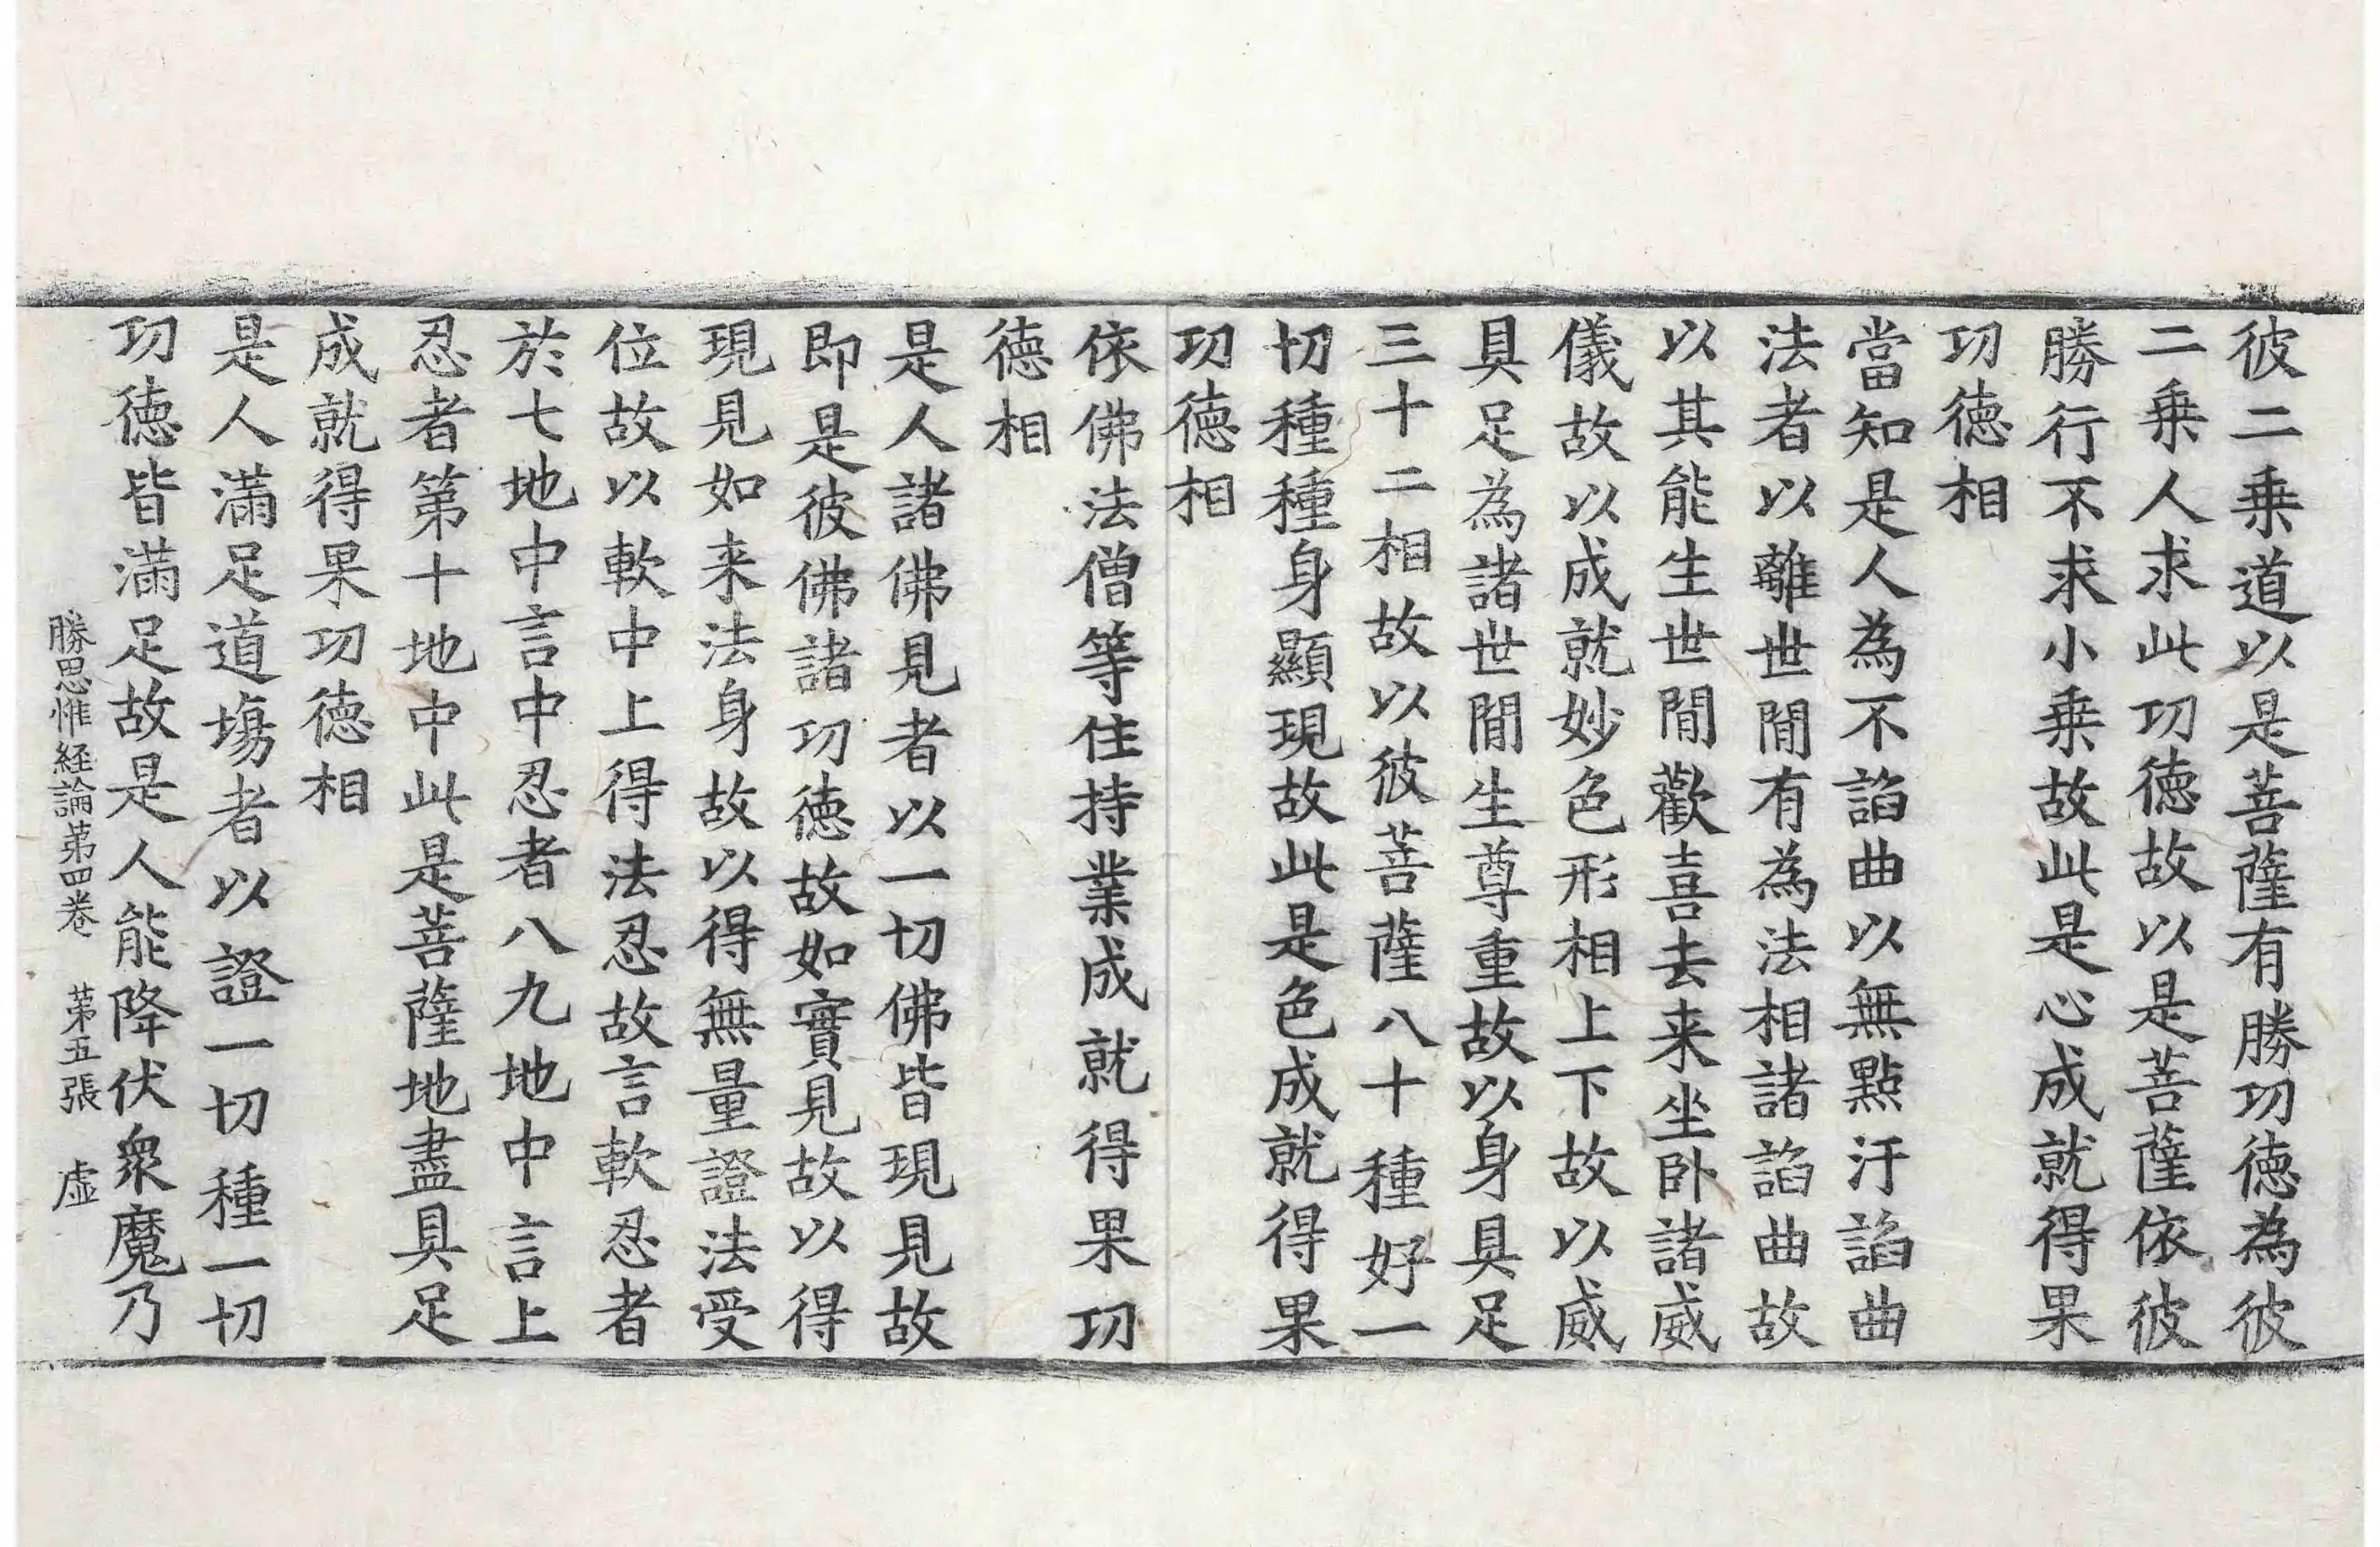 彼二乗道以是菩薩有勝功徳為彼
二乗人求此功徳故以是菩薩依彼
勝行不求小乗故此是心成就得果
功徳相
當知是人為不諂曲以無點汙諂曲
法者以離世間有為法相諸諂曲故
以其能生世間歡喜去来坐卧諸威
儀故以成就妙色形相上下故以威
具足為諸世間生尊重故以身具足
三十二相故以彼菩薩八十種好一
切種種身顯現故此是色成就得果
功徳相
依佛法僧等住持業成就得果功
徳相
是人諸佛見者以一切佛皆現見故
即是彼佛諸功徳故如實見故以得
現見如来法身故以得無量證法受
位故以軟中上得法忍故言軟忍者
於七地中言中忍者八九地中言上
忍者第十地中此是菩薩地盡具足
成就得果功徳相
是人滿足道塲者以證一切種一切
功徳皆滿足故是人能降伏衆魔乃
勝思惟経論第四巻 第五張 虚